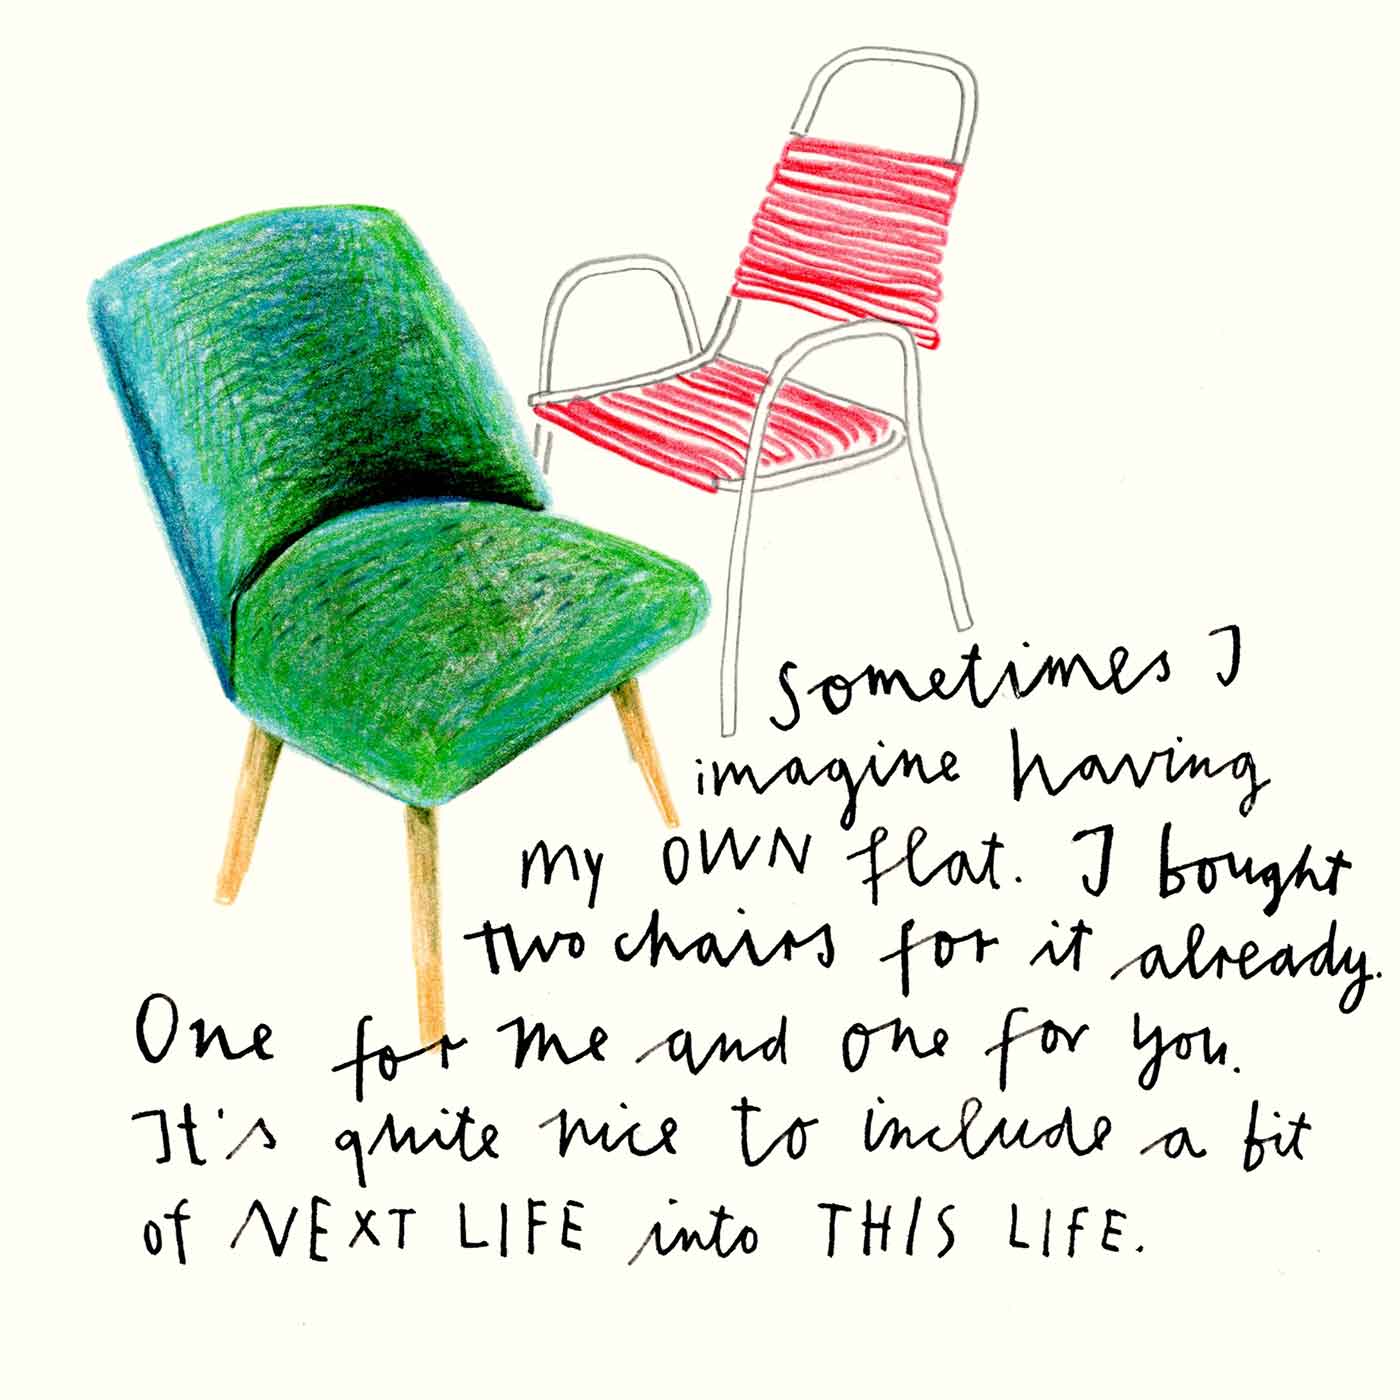 Sometimes I
imagine having
my OWN flat. I bought
two chairs for it already.
One for me and one for you.
It's quite nice to include a bit
of NEXT LIFE into THIS LIFE.